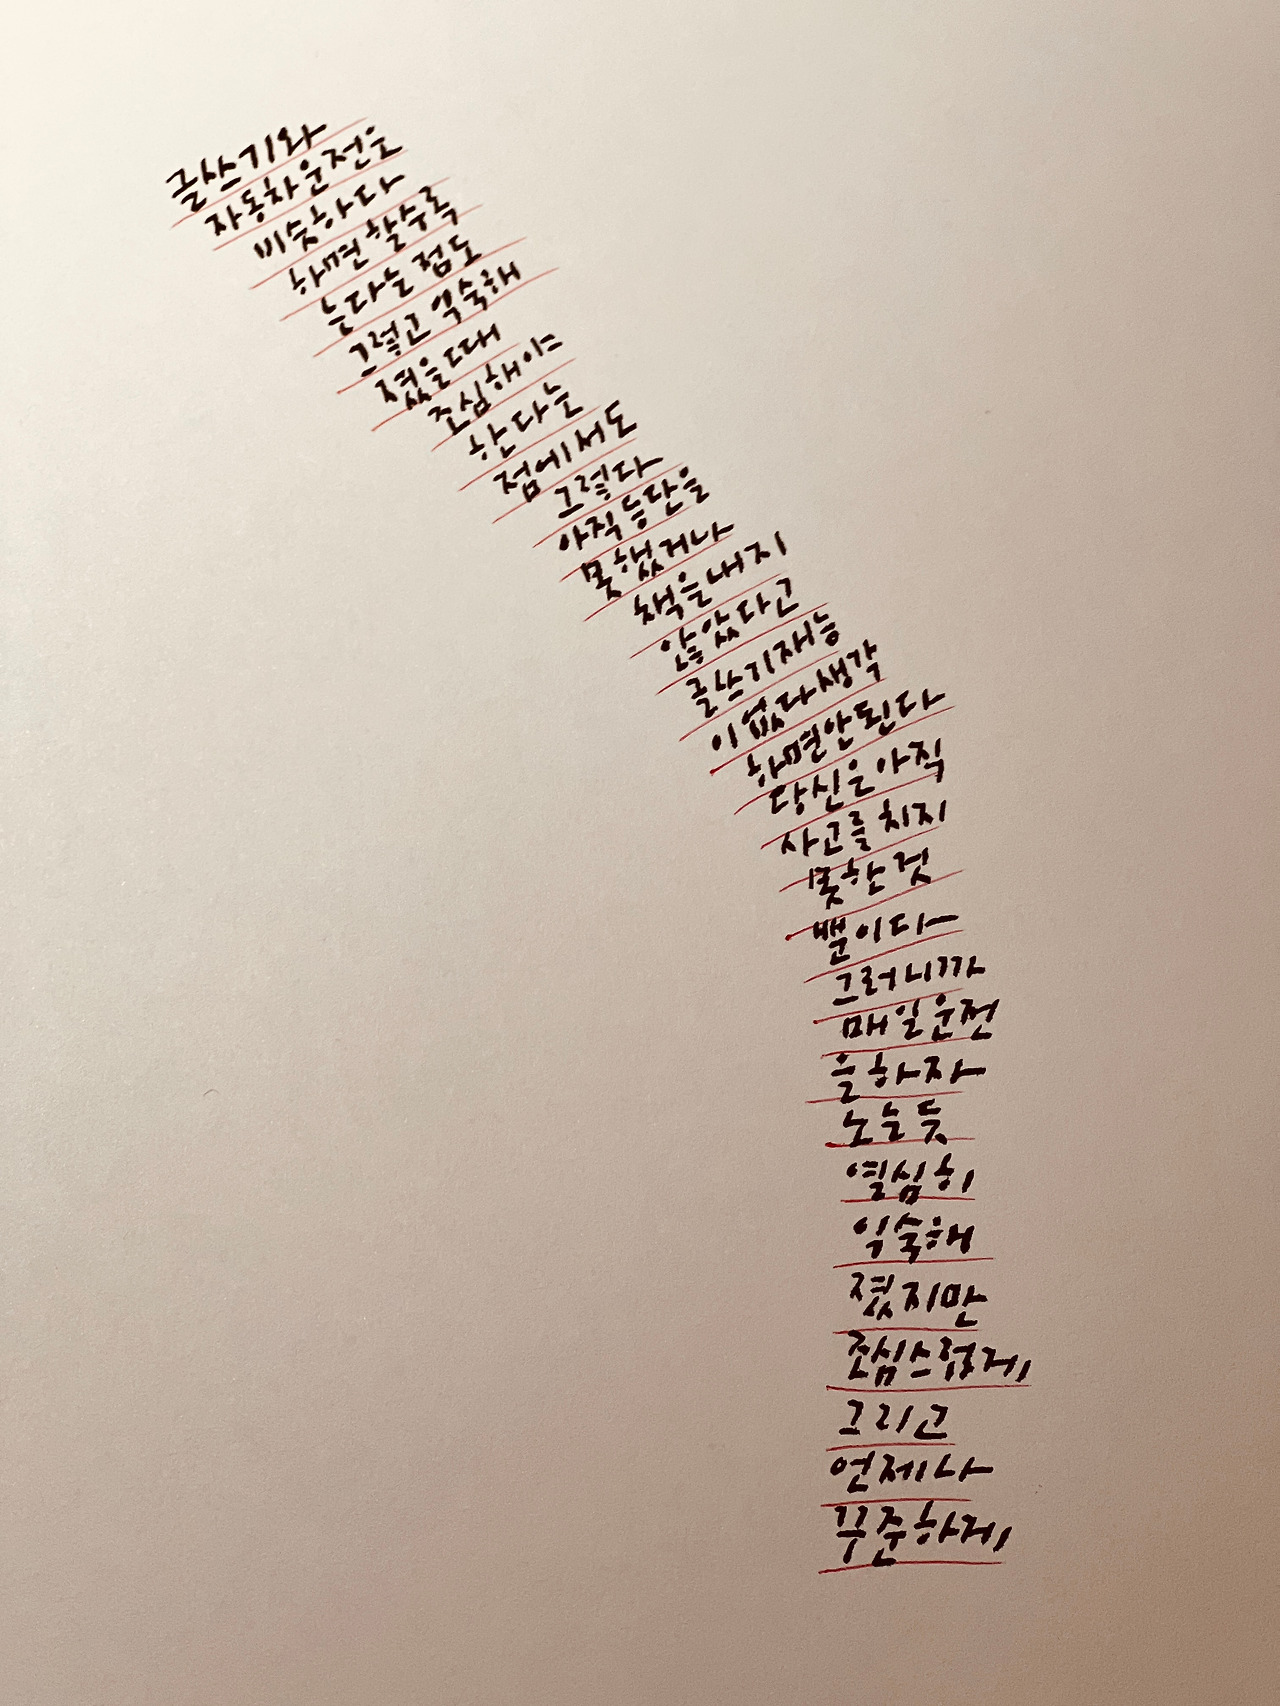 글쓰기와
자동차운전은
비슷하다
하면 할수록
는다는 점도
그렇고 익숙해
졌을때
조심해야
한다는
점에서도
그렇다
아직 등단을
못했거나
책을내지
않았다고
글쓰기재능
이 없다생각
하면안된다
당신은아직
사고를 치지
못한것
뿐이다
그러니까
매일운전
을 하자
노는듯
열심히
익숙해
졌지만
조심스럽게,
그리고
언제나
꾸준하게,